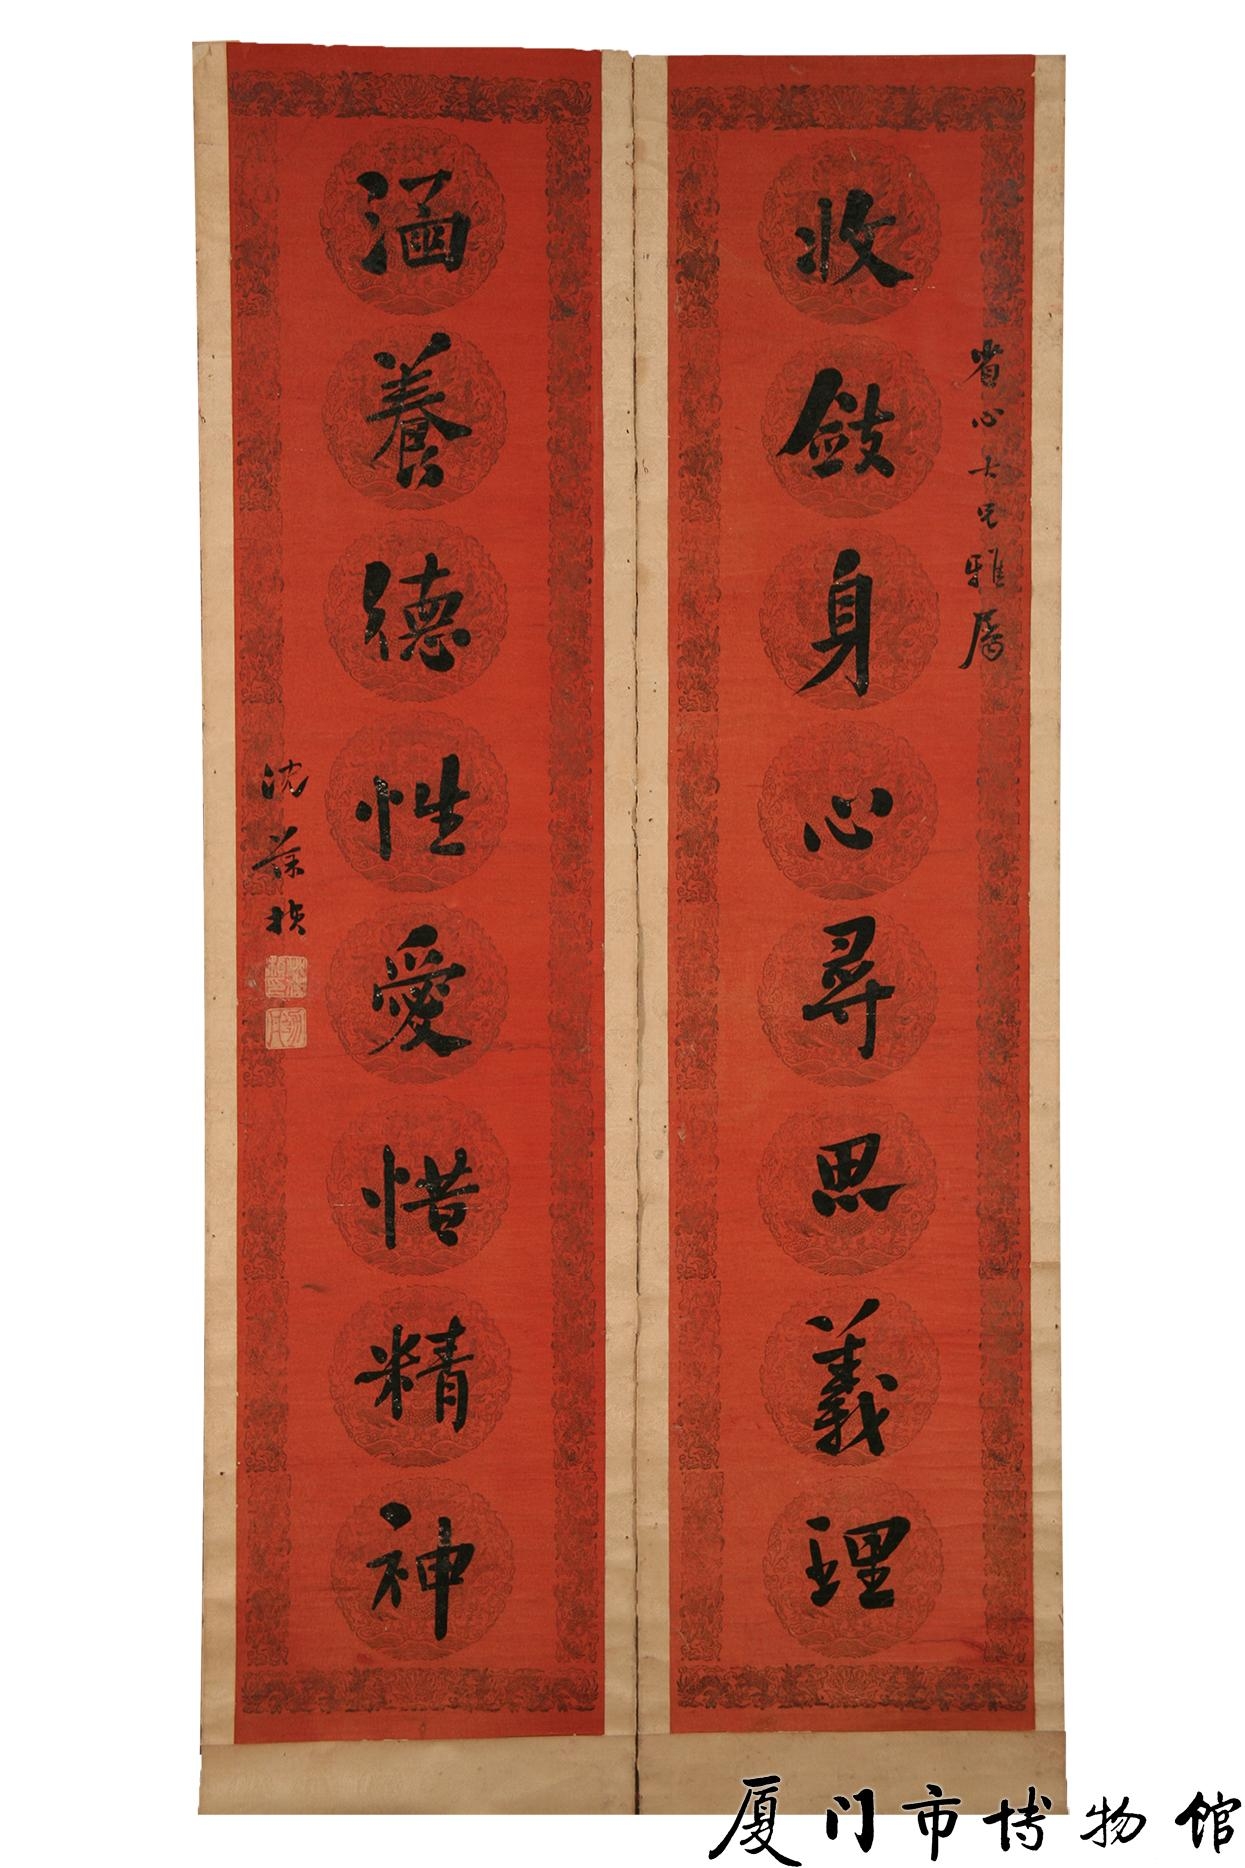 省心大兄雅屬
收斂身心尋思義理
涵養德性愛惜精神
沈葆楨
厦门市博物馆